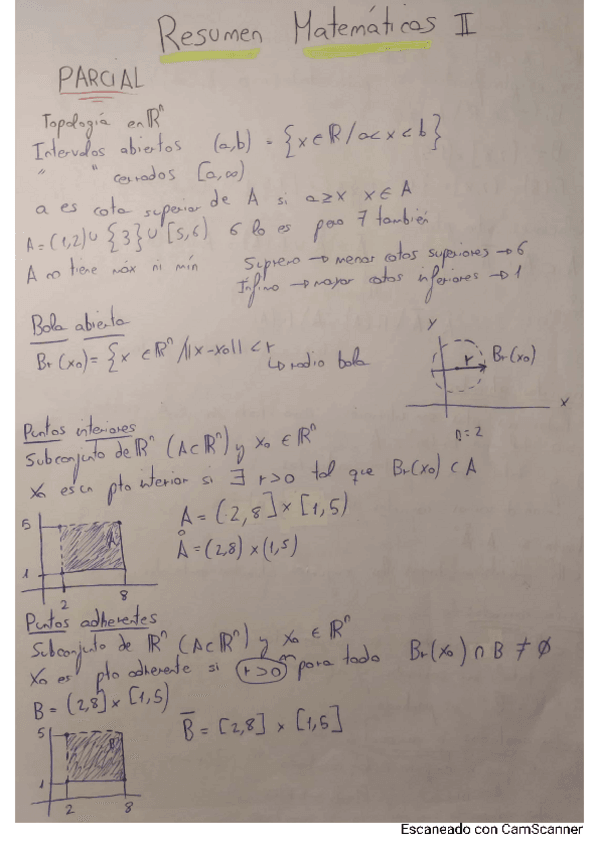 Resumen Matemáticas II
PARCIAL
Topología en ℝⁿ
Intervalos abiertos (a,b) = {x ∈ ℝ / a < x < b}
" " cerrados [a,∞)
a es cota superior de A si a ≥ x x ∈ A
A = (1,2) ∪ {3} ∪ [5,6) 6 lo es pero 7 también
A no tiene máx ni mín Supremo → menor cotas superiores → 6
Ínfimo → mayor cotas inferiores → 1
Bola abierta
Br(x₀) = {x ∈ ℝⁿ / ||x-x₀|| < r
↳ radio bola
y
r
Br(x₀)
x
n=2
Puntos interiores
Subconjunto de ℝⁿ (A⊂ℝⁿ) y x₀ ∈ ℝⁿ
x₀ es un pto interior si ∃ r>0 tal que Br(x₀) ⊂ A
A = (2,8] × [1,5)
Å = (2,8) × (1,5)
5
A
1
2 8
Puntos adherentes
Subconjunto de ℝⁿ (A⊂ℝⁿ) y x₀ ∈ ℝⁿ
x₀ es pto adherente si r>0 para todo Br(x₀) ∩ B ≠ ∅
B = (2,8] × [1,5)
B̅ = [2,8] × [1,5]
5
B
1
2 8
Escaneado con CamScanner